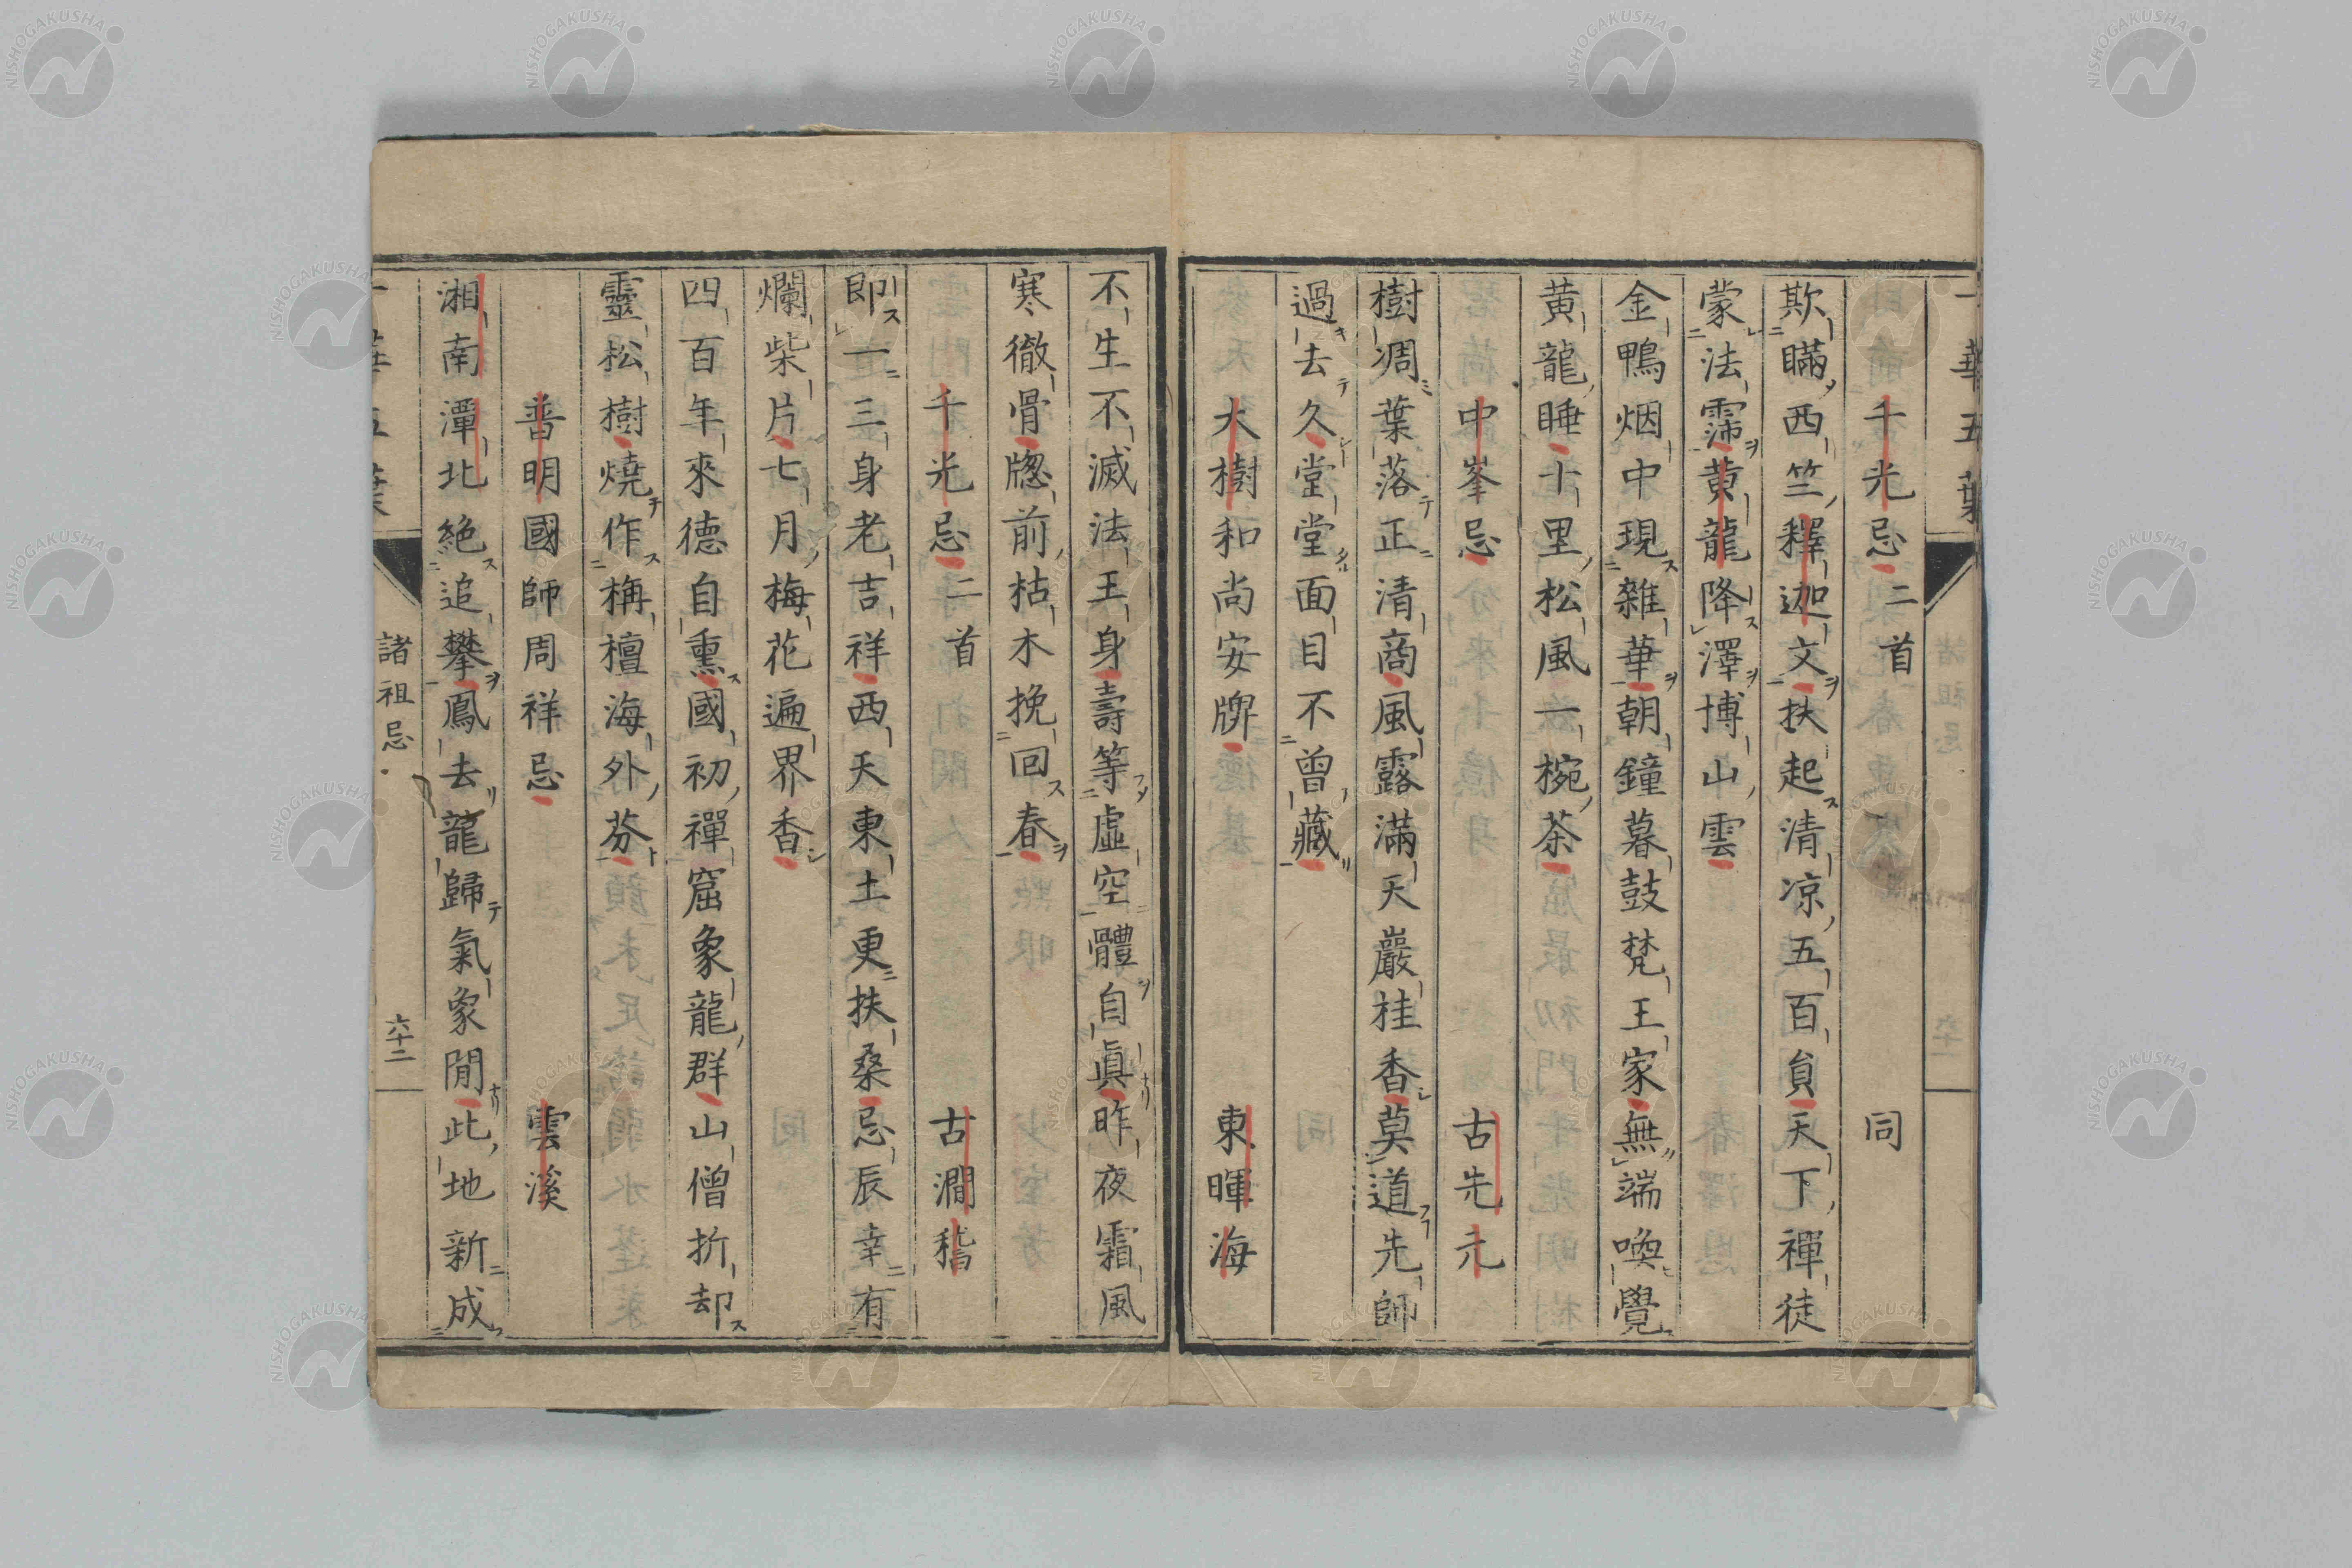 一華五葉
千光忌 二首 同
欺瞞西竺釋迦文扶起清凉五百員天下禪徒
蒙法霈黄龍降澤博山雲
金鴨烟中現雜華朝鐘暮鼓梵王家無端喚覺
黄龍睡十里松風一椀茶
中峯忌 古先元
樹凋葉落正清商風露滿天巖桂香莫道先師
過去久堂堂面目不曾藏
大樹和尚安牌 東暉海
不生不滅法王身壽等虛空體自眞昨夜霜風
寒徹骨牎前枯木挽回春
千光忌 二首 古澗稽
即一三身老吉祥西天東土更扶桑忌辰幸有
爛柴片七月梅花遍界香
四百年來德自熏國初禪窟象龍群山僧折却
靈松樹燒作栴檀海外芬
普明國師周祥忌 雲溪
湘南潭北絕追攀鳳去龍歸氣象閒此地新成
諸祖忌 六十二
NISHOGAKUSHA